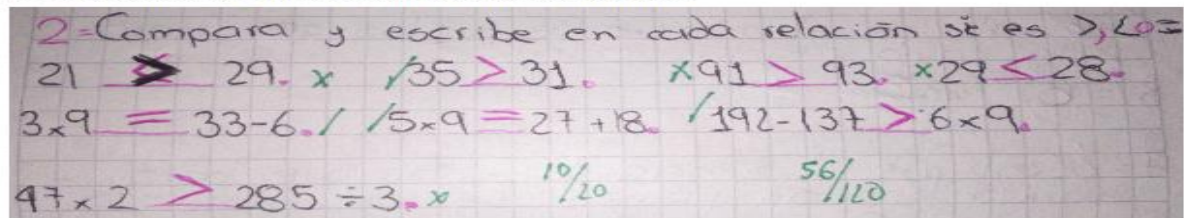 2=Compara y escribe en cada relación si es >,< o =
21 > 29. x /35 > 31. x91 > 93. x29 < 28.
3x9 = 33-6. / /5x9 = 27+18. /192-137 > 6x9.
47x2 > 285÷3. x 10/20 56/120